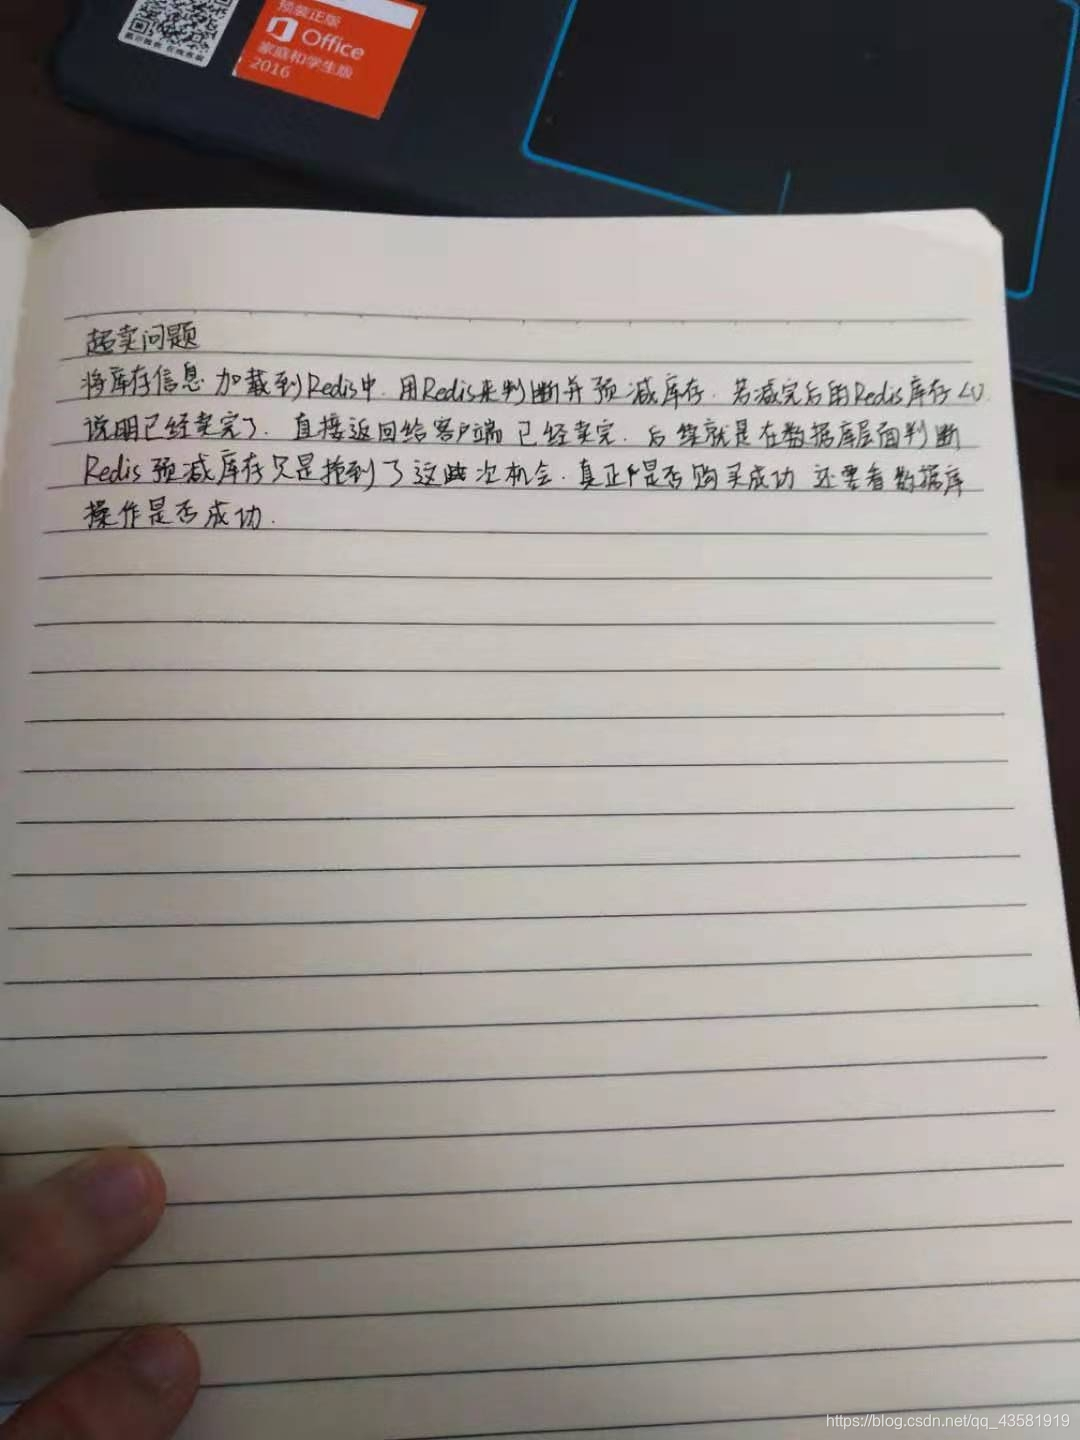 预装正版
Office
家庭和学生版
2016
超卖问题
将库存信息加载到Redis中.用Redis来判断并预减库存.若减完后用Redis库存<0
说明已经卖完了.直接返回给客户端已经卖完.后续就是在数据库层面判断
Redis预减库存只是抢到了这些次机会.真正 是否购买成功 还要看数据库
操作是否成功.
https://blog.csdn.net/qq_43581919